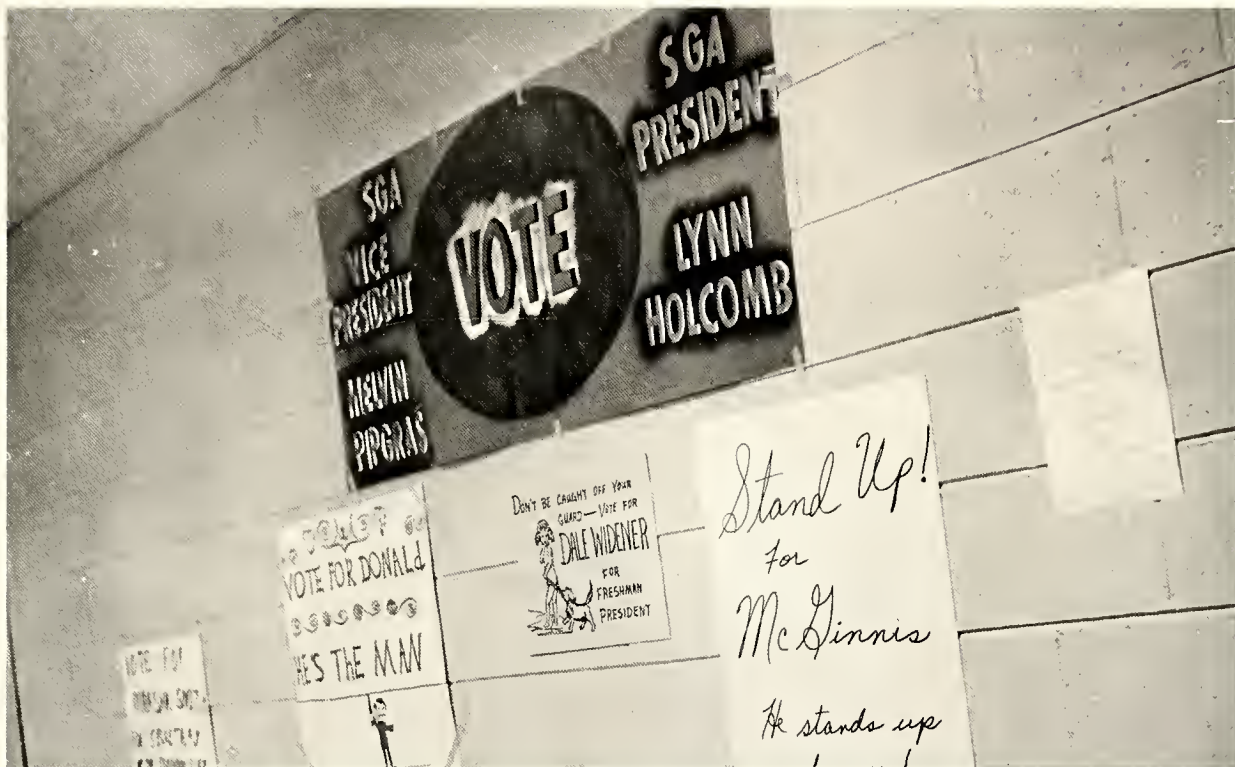 SGA
VICE
PRESIDENT
MELVIN
PIPGRAS
VOTE
SGA
PRESIDENT
LYNN
HOLCOMB
VOTE FOR
VOTE FOR DONALd
HE'S THE MAN
DON'T BE CAUGHT OFF YOUR
GUARD—VOTE FOR
DALE WIDENER
FOR
FRESHMAN
PRESIDENT
Stand Up!
For
McGinnis
He stands up